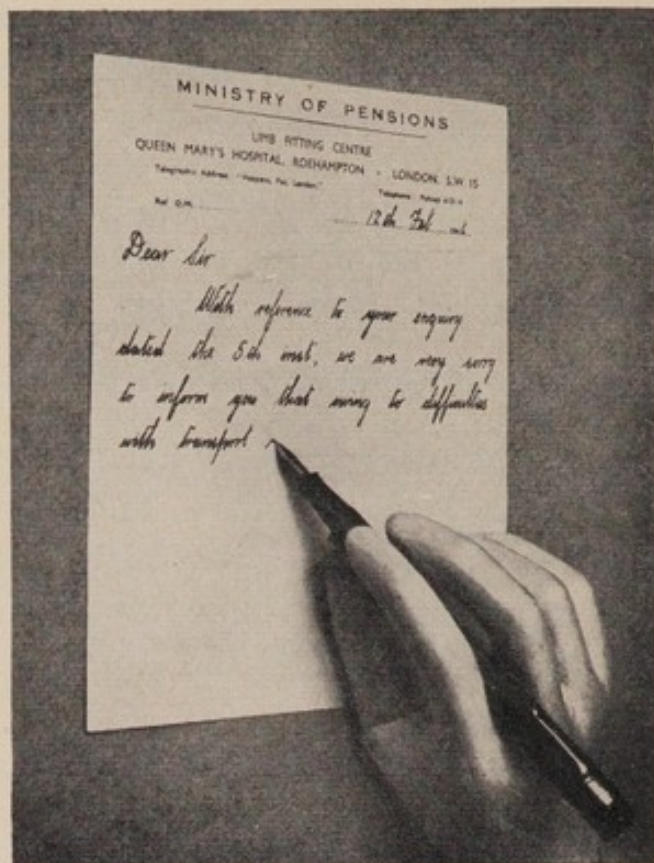 MINISTRY OF PENSIONS
LIMB FITTING CENTRE
QUEEN MARY'S HOSPITAL, ROEHAMPTON - LONDON, S.W. 15
Telegraphic Address: London."
Telephone:
Ref. D.M.
12th Feb
Dear Sir
With reference to your enquiry
dated the 5th inst, we are very sorry
to inform you that owing to difficulties
with transport